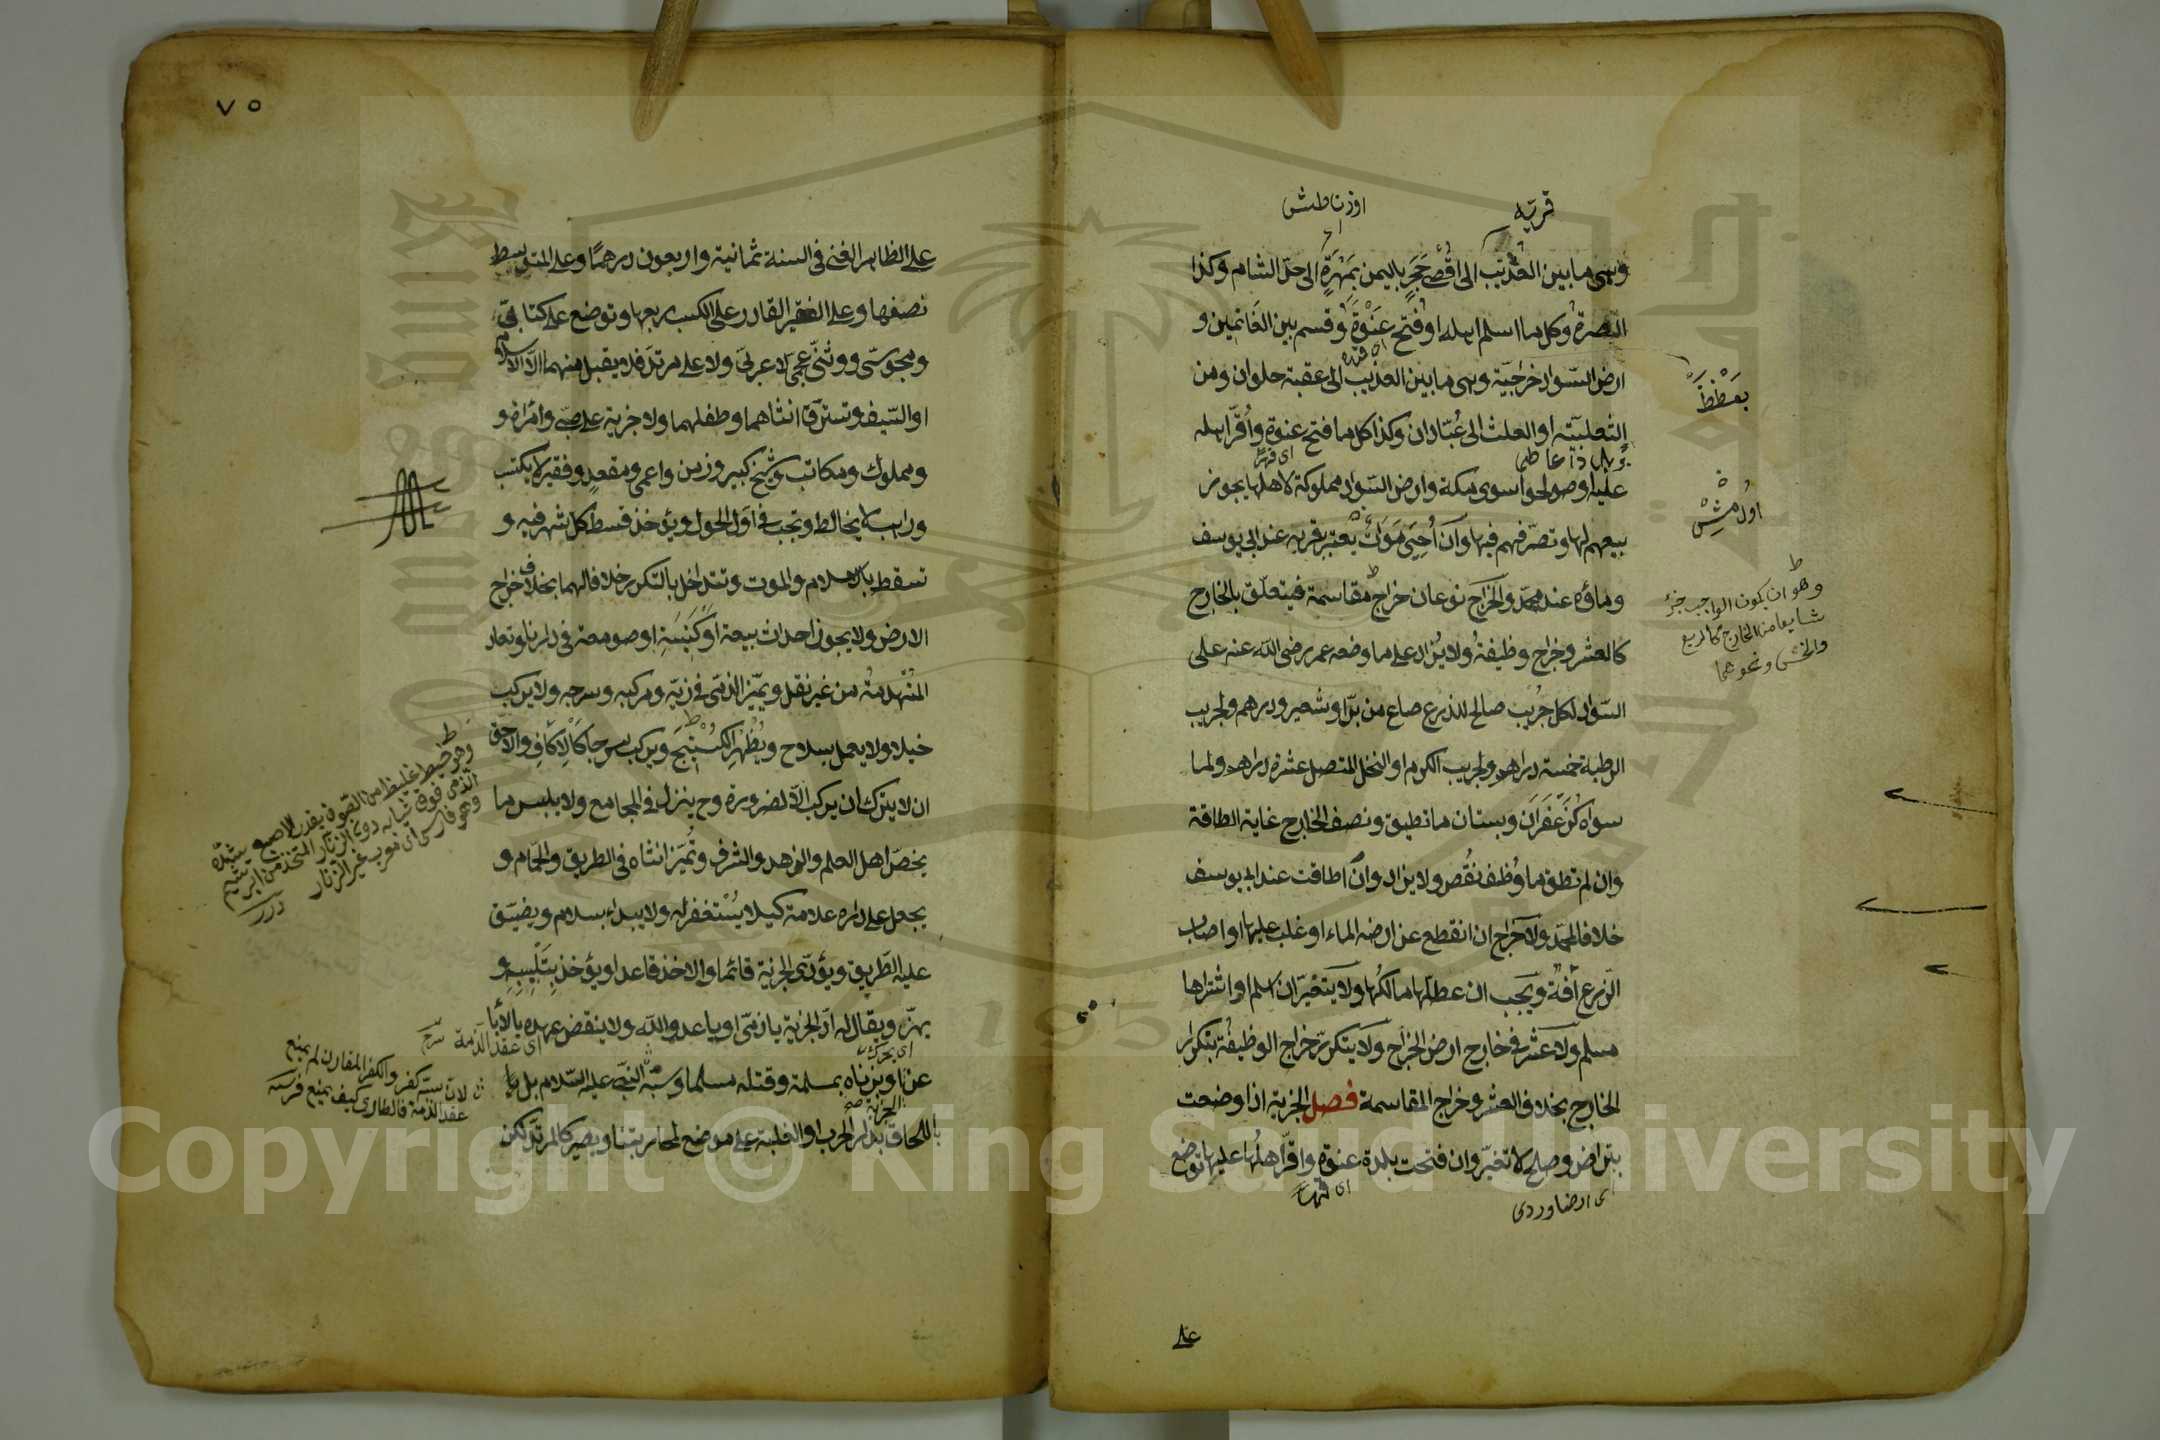 قريه
اوزناطش
وهي ما بين العذيب الى اقصى حجر باليمن بمهرة الى حد الشام وكذا
البصرة وكل ما اسلم اهله او فتح عنوة وقسم بين الغانمين و
ارض السواد خراجية وهي ما بين العذيب الى عقبة حلوان ومن
الثعلبية او العلث الى عبادان وكذا كل ما فتح عنوة واقر اهله
اى قهرا
عليه او صولحوا سوى مكة وارض السواد مملوكة لاهلها يجوز
بيعهم لها وتصرفهم فيها وان احيى موات يعتبر بقربه عند ابي يوسف
ومائه عند محمد والخراج نوعان خراج مقاسمة فيتعلق بالخارج
كالعشر وخراج وظيفة ولا يزاد على ما وضعه عمر رضى الله عنه على
السواد لكل جريب صالح للزرع صاع من بر او شعير ودرهم ولجريب
الرطبة خمسة دراهم ولجريب الكرم او النخل المتصل عشرة دراهم ولما
سواه كزعفران وبستان ما تطيق ونصف الخارج غاية الطاقة
وان لم تطق ما وظف نقص ولا يزاد وان اطاقت عند ابي يوسف
خلافا لمحمد ولا خراج ان انقطع عن ارضه الماء او غلب عليها او اصاب
الزرع آفة ويجب ان عطلها مالكها ولا يتغير ان اسلم او اشتراها
مسلم ولا عشر في خارج ارض الخراج ولا يتكرر خراج الوظيفة بتكرار
الخارج بخلاف العشر وخراج المقاسمة فصل الجزية اذا وضعت
بتراض وصلح لا تغير وان فتحت بلدة عنوة واقر اهلها عليها توضع
اى قهرا
على
اولمش
وهو ان يكون الواجب جزء
شايعا من الخارج كالربع
والخمس ونحوهما
٧٥
على الظاهر الغنى في السنة ثمانية واربعون درهما وعلى المتوسط
نصفها وعلى الفقير القادر على الكسب ربعها وتوضع على كتابي
ومجوسي ووثني عجمي لا عربي ولا على مرتد فلا يقبل منهما الا الاسلام
او السيف وتسترق انثاهما وطفلهما ولا جزية على صبي وامراة و
ومملوك ومكاتب وشيخ كبير وزمن واعمى ومقعد وفقير لا يكتسب
وراهب لا يخالط وتجب في اول الحول ويؤخذ قسط كل شهر فيه و
تسقط بالاسلام والموت وتتداخل بالتكرر خلافا لهما بخلاف خراج
الارض ولا يجوز احداث بيعة او كنيسة او صومعة في دارنا وتعاد
المنهدمة من غير نقل ويميز الذمى في زيه ومركبه وسرجه ولا يركب
خيلا ولا يعمل بسلاح ويظهر الكستيج ويركب سرجا كالاكاف والاحق
ان لا يترك ان يركب الا لضرورة وح ينزل في المجامع ولا يلبس ما
يخص اهل العلم والزهد والشرف وتميز انثاه في الطريق والحمام و
يجعل على داره علامة كيلا يستغفر له ولا يبداء بسلام ويضيق
عليه الطريق ويؤدى الجزية قائما والآخذ قاعدا ويؤخذ بتلبيبه و
يهز ويقال له اد الجزية يا ذمى او يا عدو الله ولا ينقض عهده بالاباء
اى عقد الذمة
عن او بزناه بمسلمة وقتله مسلما وسبه النبي عليه السلام بل
الجزية صح
باللحاق بدار الحرب او الغلبة على موضع لمحاربتنا ويصير كالمرتد لكن
وهو خيط غليظ من الصوف بقدر الاصبع يشده
الذمى فوق ثيابه دون الزنار المتخذ من الابريشم
وهو فارسى معرب غير الزنار
درر
لان سبه كفر والكفر المقارن لم يمنع
عقد الذمة فالطارى كيف يمنع
Copyright © King Saud University
King Saud University
1957